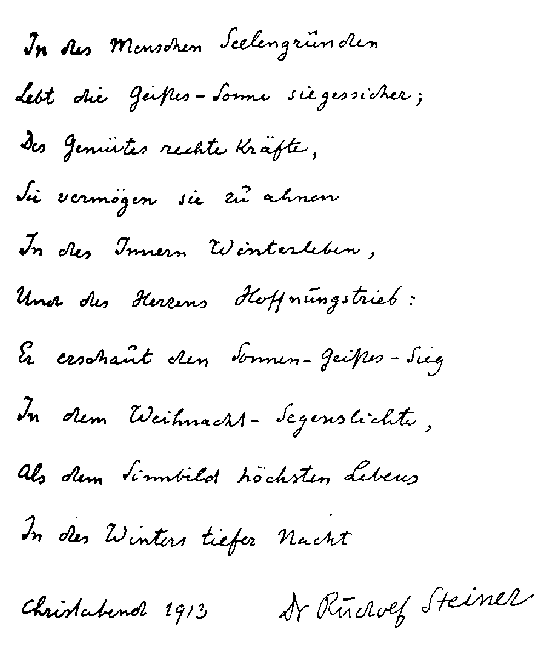 In des Menschen Seelengründen
Lebt die Geistes-Sonne siegessicher;
Des Gemütes rechte Kräfte,
Sie vermögen sie zu ahnen
In des Innern Winterleben,
Und des Herzens Hoffnungstrieb:
Er erschaut den Sonnen-Geistes-Sieg
In dem Weihnacht-Segenslichte,
Als dem Sinnbild höchsten Lebens
In des Winters tiefer Nacht
Christabend 1913 Dr Rudolf Steiner